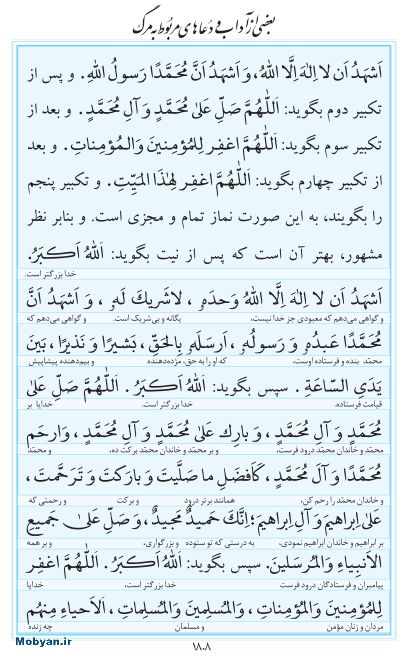 بعضی از آداب و دعاهای مربوط به مرگ
اَشهَدُ اَن لا اِلٰهَ اِلَّا اللهُ، وَ اَشهَدُ اَنَّ مُحَمَّدًا رَسولُ اللهِ. و پس از
تکبیر دوم بگوید: اَللّٰهُمَّ صَلِّ عَلىٰ مُحَمَّدٍ وَ آلِ مُحَمَّدٍ. و بعد از
تکبیر سوم بگوید: اَللّٰهُمَّ اغفِر لِلمُؤمِنينَ وَ المُؤمِناتِ. و بعد
از تکبیر چهارم بگوید: اَللّٰهُمَّ اغفِر لِهٰذَا المَيِّتِ. و تکبیر پنجم
را بگویند، به این صورت نماز تمام و مجزی است. و بنابر نظر
مشهور، بهتر آن است که پس از نیت بگوید: اَللهُ اَكبَرُ.
خدا بزرگتر است.
اَشهَدُ اَن لا اِلٰهَ اِلَّا اللهُ وَحدَهٗ، لاشَريكَ لَهٗ، وَ اَشهَدُ اَنَّ
و گواهی می‌دهم که معبودی جز خدا نیست، یگانه و بی‌شریک است. و گواهی می‌دهم که
مُحَمَّدًا عَبدُهٗ وَ رَسولُهٗ، اَرسَلَهٗ بِالحَقِّ، بَشيرًا وَ نَذيرًا، بَينَ
محمّد بنده و فرستاده اوست، که او را به حق، مژده‌دهنده و بیم‌دهنده پیشاپیش
يَدَيِ السّاعَةِ. سپس بگوید: اَللهُ اَكبَرُ. اَللّٰهُمَّ صَلِّ عَلىٰ
قیامت فرستاده. خدا بزرگتر است. خدایا بر
مُحَمَّدٍ وَ آلِ مُحَمَّدٍ، وَ بارِك عَلىٰ مُحَمَّدٍ وَ آلِ مُحَمَّدٍ، وَ ارحَم
محمّد و خاندان محمّد درود فرست، و بر محمّد و خاندان محمّد برکت ده، و محمّد
مُحَمَّدًا وَ آلَ مُحَمَّدٍ، كَاَفضَلِ ما صَلَّيتَ وَ بارَكتَ وَ تَرَحَّمتَ،
و خاندان محمّد را رحم کن، همانند برتر درود و برکت و رحمتی که
عَلىٰ اِبراهيمَ وَ آلِ اِبراهيمَ؛ اِنَّكَ حَميدٌ مَجيدٌ، وَ صَلِّ عَلىٰ جَميعِ
بر ابراهیم و خاندان ابراهیم نمودی، به درستی که تو ستوده و بزرگواری، و بر همه
الاَنبِياءِ وَ المُرسَلينَ. سپس بگوید: اَللهُ اَكبَرُ. اَللّٰهُمَّ اغفِر
پیامبران و فرستادگان درود فرست خدا بزرگتر است، خدایا
لِلمُؤمِنينَ وَ المُؤمِناتِ، وَ المُسلِمينَ وَ المُسلِماتِ، اَلاَحياءِ مِنهُم
مردان و زنان مؤمن و مسلمان چه زنده
۱۸۰۸
Mobyan.ir